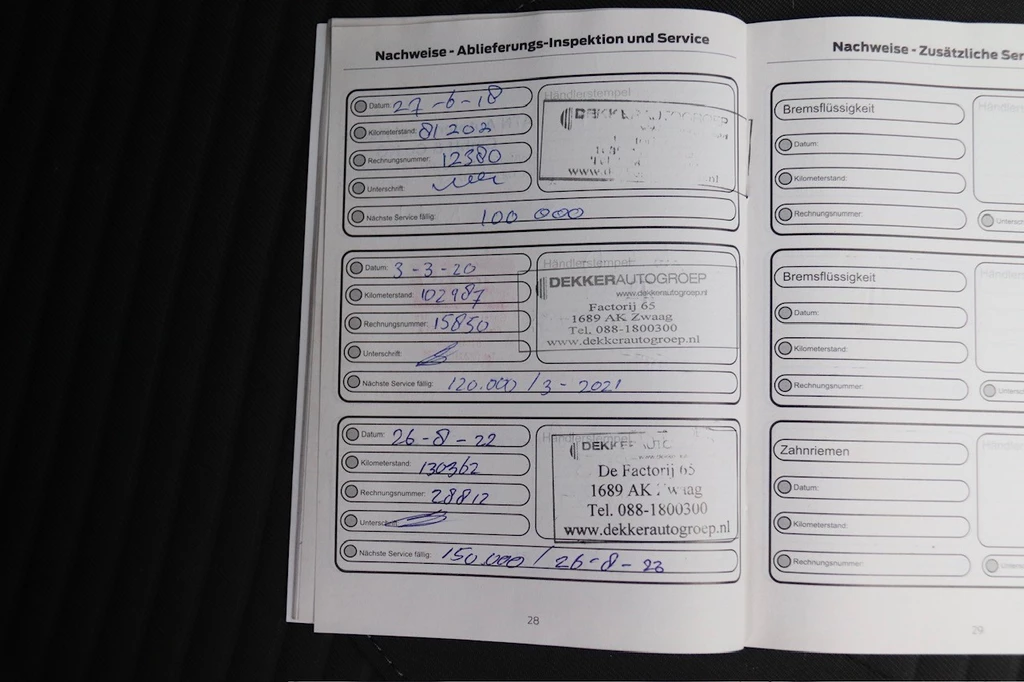 Nachweise - Ablieferungs-Inspektion und Service
Datum: 27-6-18
Kilometerstand: 81 202
Rechnungsnummer: 12380
Unterschrift:
Nächste Service fällig: 100 000
Händlerstempel
DEKKERAUTOGROEP
Datum: 3-3-20
Kilometerstand: 102987
Rechnungsnummer: 15850
Unterschrift:
Nächste Service fällig: 120.000 / 3 - 2021
Händlerstempel
DEKKERAUTOGROEP
www.dekkerautogroep.nl
Factorij 65
1689 AK Zwaag
Tel. 088-1800300
www.dekkerautogroep.nl
Datum: 26-8-22
Kilometerstand: 130362
Rechnungsnummer: 28812
Unterschrift:
Nächste Service fällig: 150.000 / 26-8-23
Händlerstempel
DEKKER AUTO
De Factorij 65
1689 AK Zwaag
Tel. 088-1800300
www.dekkerautogroep.nl
28
Nachweise - Zusätzliche Ser
Bremsflüssigkeit
Datum:
Kilometerstand:
Rechnungsnummer:
Händlers
Untersch
Bremsflüssigkeit
Datum:
Kilometerstand:
Rechnungsnummer:
Händlers
Untersch
Zahnriemen
Datum:
Kilometerstand:
Rechnungsnummer:
Händlers
Unters
29